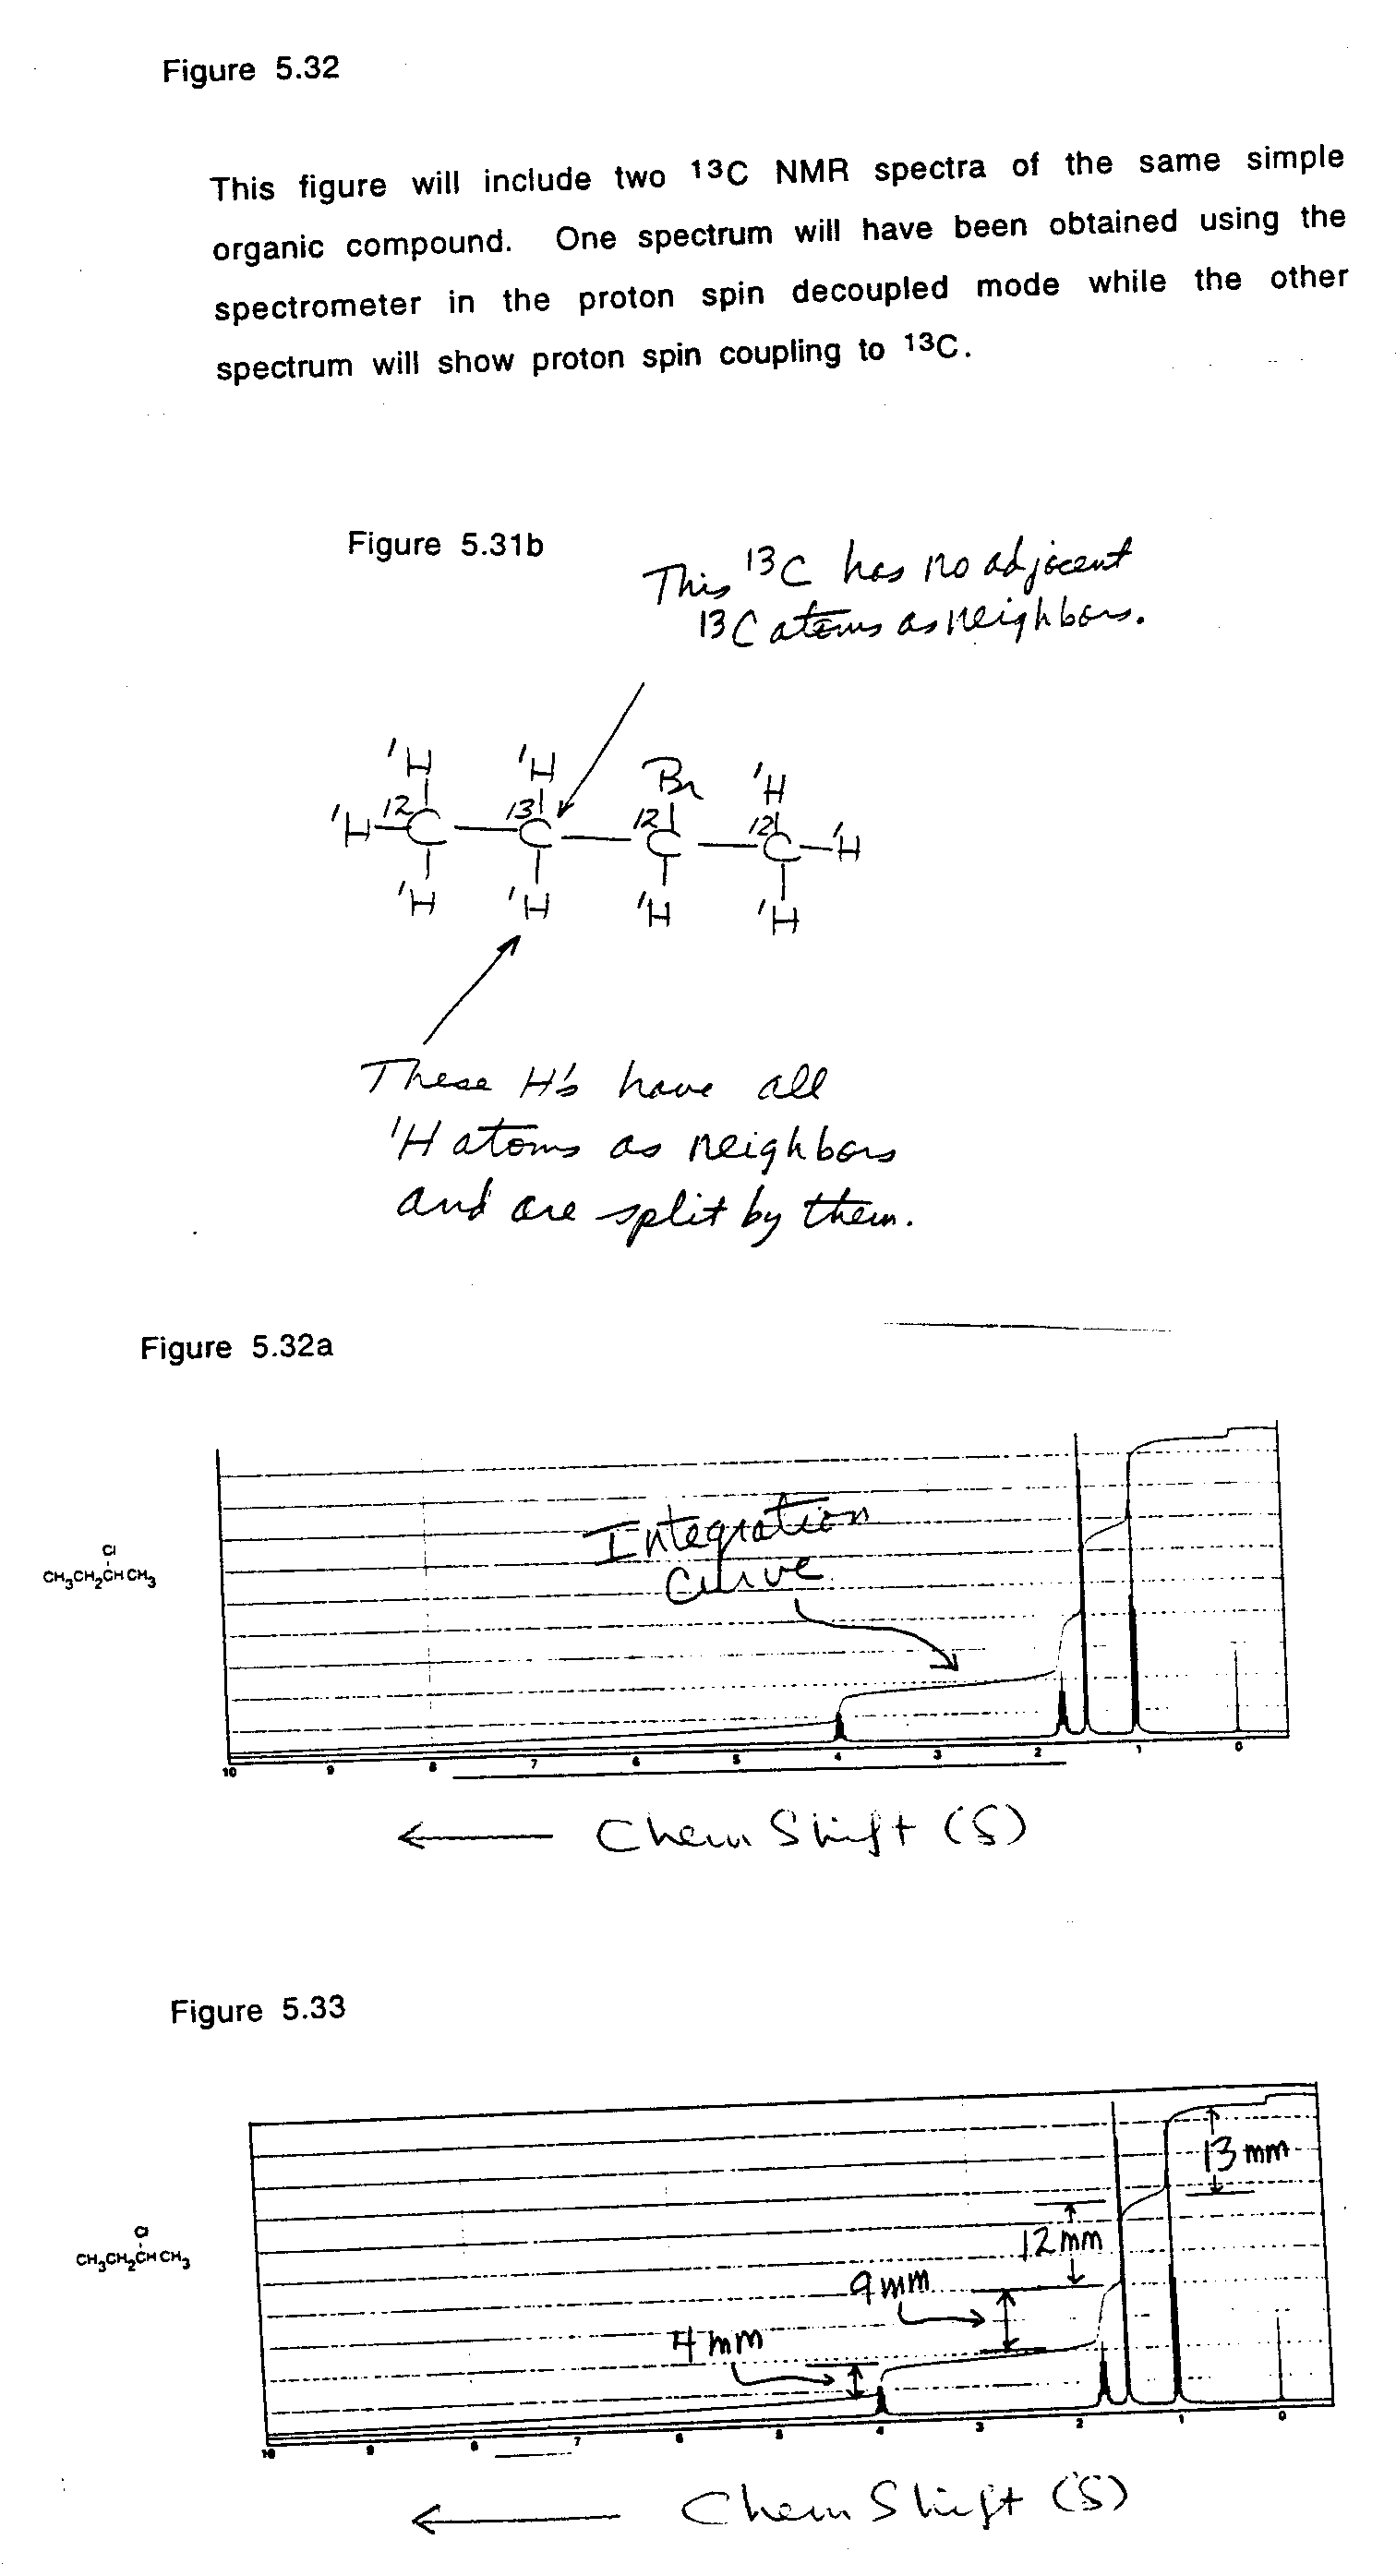 Figure 5.32
This figure will include two 13C NMR spectra of the same simple
organic compound. One spectrum will have been obtained using the
spectrometer in the proton spin decoupled mode while the other
spectrum will show proton spin coupling to 13C.
Figure 5.31b
This 13C has no adjacent
13C atoms as neighbors.
1H 1H Br 1H
1H-12C-13C-12C-12C-1H
1H 1H 1H 1H
These H's have all
1H atoms as neighbors
and are split by them.
Figure 5.32a
Integration
curve
Cl
CH3CH2CHCH3
10 9 8 7 6 5 4 3 2 1 0
← Chem Shift (δ)
Figure 5.33
13 mm
12 mm
9 mm
4 mm
Cl
CH3CH2CHCH3
10 9 8 7 6 5 4 3 2 1 0
← Chem Shift (δ)